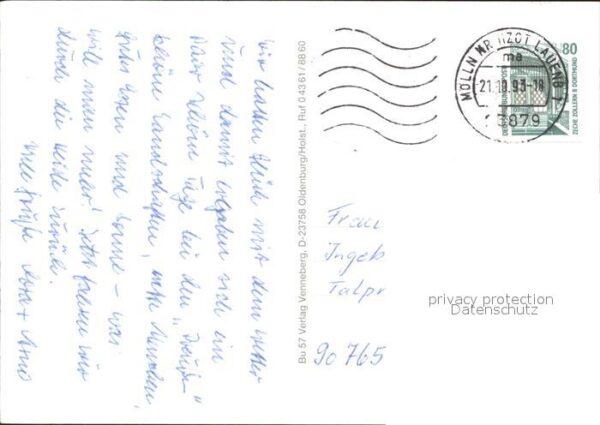 Wir hatten Glück mit dem Wetter
und damit ergaben sich ein
paar schöne Tage bei den
schöne Landschaften, nette Menschen,
gutes Essen und Sonne – was
will man mehr! Jetzt fahren wir
durch die Heide zurück.
Viele Grüße
Bu 57 Verlag Venneberg, D-23758 Oldenburg/Holst., Ruf 0 43 61 / 88 60
MÖLLN
ma
21.10.93-18
23879
80
DEUTSCHE BUNDESPOST
ZECHE ZOLLERN II DORTMUND
Frau
Ingeb
Talpr
90765
privacy protection
Datenschutz